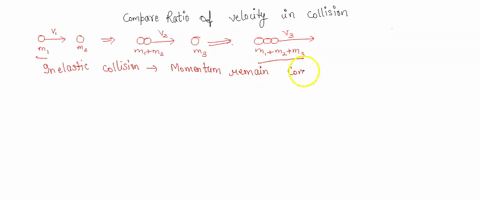 Compare Ratio of velocity in Collision
V₁ V₂ V₃
m₁ m₂ ⇒ m₁+m₂ m₃ ⇒ m₁+m₂+m₃
Inelastic Collision → Momentum remain Con